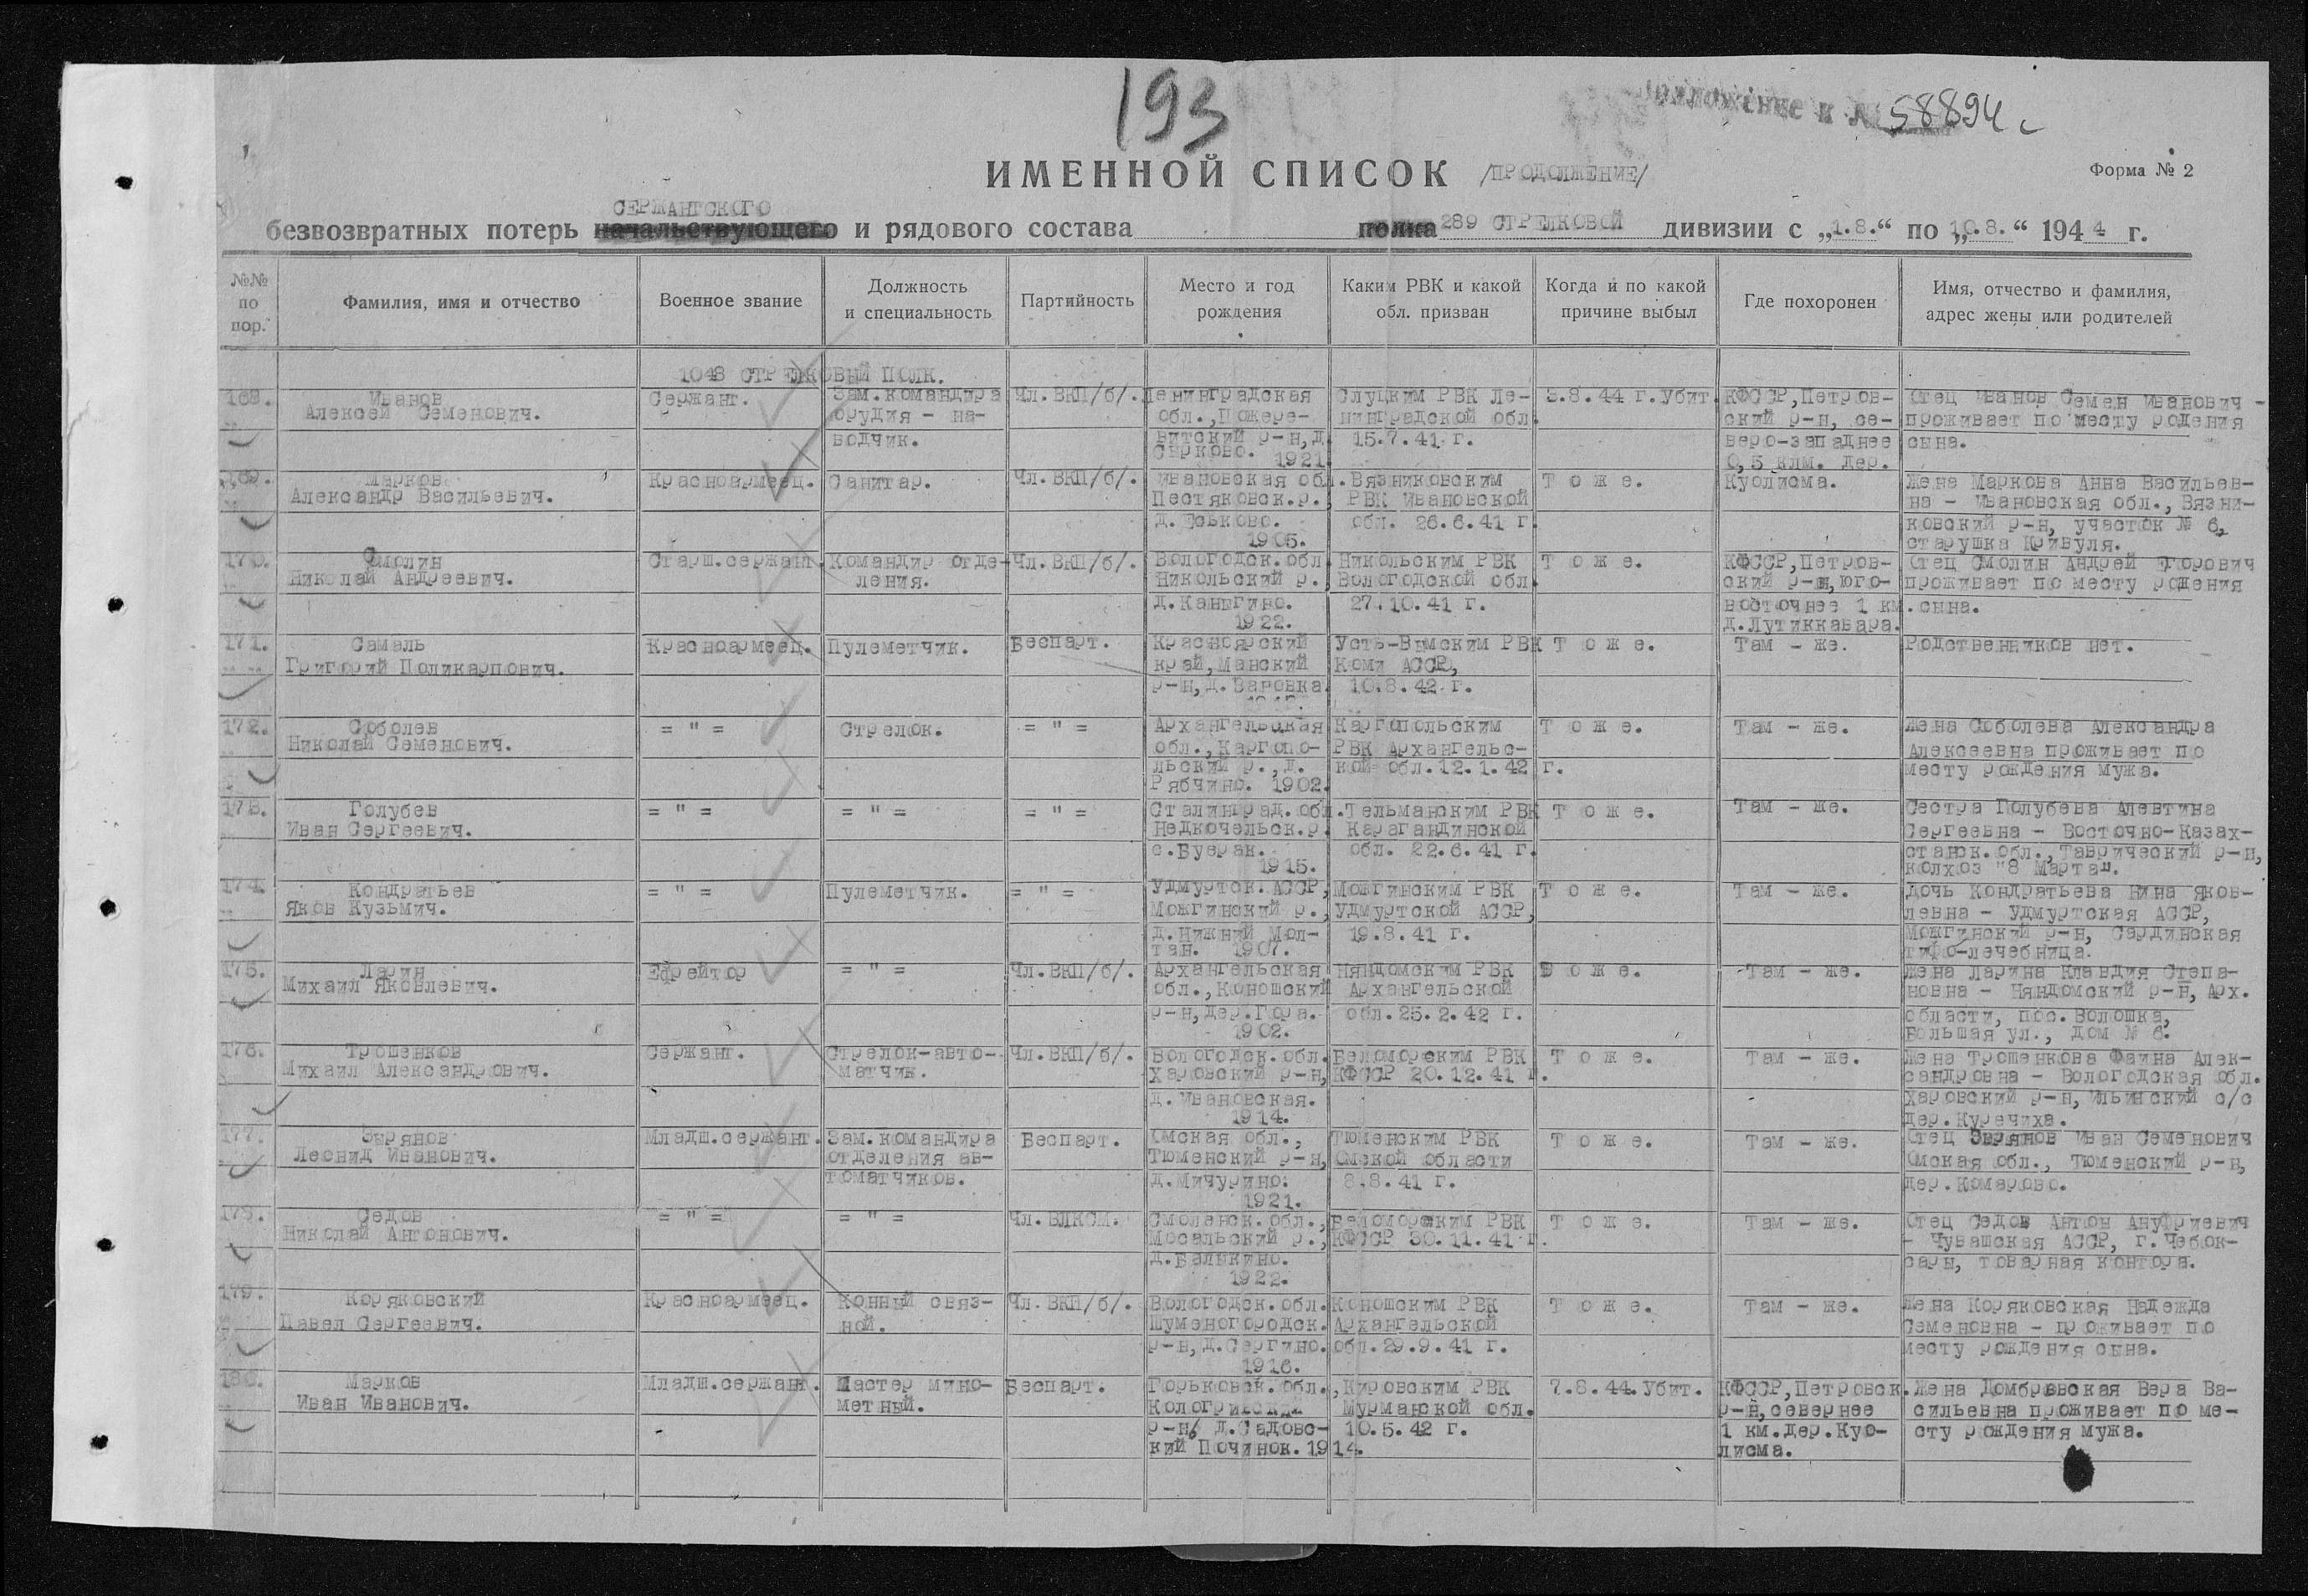 193
Приложение к № 58894с
ИМЕННОЙ СПИСОК /ПРОДОЛЖЕНИЕ/
Форма № 2
СЕРЖАНТСКОГО
безвозвратных потерь начальствующего и рядового состава полка 289 СТРЕЛКОВОЙ дивизии с „1.8.“ по „10.8.“ 1944 г.
№№ по пор. Фамилия, имя и отчество Военное звание Должность и специальность Партийность Место и год рождения Каким РВК и какой обл. призван Когда и по какой причине выбыл Где похоронен Имя, отчество и фамилия, адрес жены или родителей
1048 СТРЕЛКОВЫЙ ПОЛК.
168. Иванов Сержант. Зам.командира Чл.ВКП/б/. Ленинградская Слуцким РВК Ле- 3.8.44 г.Убит. КФССР,Петров- Отец Иванов Семен Иванович -
Алексей Семенович. орудия - на- обл.,Пожере- нинградской обл ский р-н, се- проживает по месту родения
водчик. витский р-н,д. 15.7.41 г. веро-западнее сына.
Сырково. 1921. 0,5 клм. дер.
169. Марков Красноармеец. Санитар. Чл.ВКП/б/. Ивановская обл. Вязниковским Т о ж е. Куолисма. Жена Маркова Анна Васильев-
Александр Васильевич. Пестяковск.р., РВК Ивановской на - Ивановская обл., Вязни-
д. Еськово. обл. 26.6.41 г. ковский р-н, участок № 6,
1905. старушка Кривуля.
170. Смолин Старш.сержант. Командир отде- Чл.ВКП/б/. Вологодск.обл. Никольским РВК Т о ж е. КФССР,Петров- Отец Смолин Андрей Егорович
Николай Андреевич. ления. Никольский р., Вологодской обл. ский р-н,юго- проживает по месту рождения
д.Каныгино. 27.10.41 г. восточнее 1 км. сына.
1922. д.Лутиккавара.
171. Самаль Красноармеец. Пулеметчик. Беспарт. Красноярский Усть-Вымским РВК Т о ж е. Там - же. Родственников нет.
Григорий Поликарпович. край,Манский Коми АССР,
р-н,д.Варовка. 10.8.42 г.
172. Соболев = " = Стрелок. = " = Архангельская Каргопольским Т о ж е. Там - же. Жена Соболева Александра
Николай Семенович. обл.,Каргопо- РВК Архангельс- Алексеевна проживает по
льский р.,д. кой обл.12.1.42 г. месту рождения мужа.
Рябчино. 1902.
173. Голубев = " = = " = = " = Сталинград.обл. Тельманским РВК Т о ж е. Там - же. Сестра Голубева Алевтина
Иван Сергеевич. Недкочельск.р. Карагандинской Сергеевна - Восточно-Казах-
с.Буерак. обл. 22.6.41 г. станск.обл.,Таврический р-н,
1915. колхоз "8 Марта".
174. Кондратьев = " = Пулеметчик. = " = Удмуртск.АССР, Можгинским РВК Т о ж е. Там - же. Дочь Кондратьева Нина Яков-
Яков Кузьмич. Можгинский р., Удмуртской АССР, левна - Удмуртская АССР,
д.Нижний Мол- 19.8.41 г. Можгинский р-н, Сардинская
тан. 1907. тифо-лечебница.
175. Ларин Ефрейтор = " = Чл.ВКП/б/. Архангельская Няндомским РВК Т о ж е. Там - же. Жена Ларина Клавдия Степа-
Михаил Яковлевич. обл.,Коношский Архангельской новна - Няндомский р-н, Арх.
р-н,дер.Гора. обл.25.2.42 г. области, пос.Волошка,
1902. Большая ул., дом № 6.
176. Трошенков Сержант. Стрелок-авто- Чл.ВКП/б/. Вологодск.обл. Беломорским РВК Т о ж е. Там - же. Жена Трошенкова Фаина Алек-
Михаил Александрович. матчик. Харовский р-н, КФССР 20.12.41 г. сандровна - Вологодская обл.
д.Ивановская. Харовский р-н, Ильинский с/с
1914. дер.Куречиха.
177. Зырянов Младш.сержант. Зам.командира Беспарт. Омская обл., Тюменским РВК Т о ж е. Там - же. Отец Зырянов Иван Семенович
Леонид Иванович. отделения ав- Тюменский р-н, Омской области Омская обл., Тюменский р-н,
томатчиков. д.Мичурино. 8.8.41 г. дер.Комарово.
1921.
178. Седов = " = = " = Чл.ВЛКСМ. Смоленск.обл., Беломорским РВК Т о ж е. Там - же. Отец Седов Антон Ануфриевич
Николай Антонович. Мосальский р., КФССР 30.11.41 г. - Чувашская АССР, г.Чебок-
д.Балыкино. сары, товарная контора.
1922.
179. Коряковский Красноармеец. Конный связ- Чл.ВКП/б/. Вологодск.обл. Коношским РВК Т о ж е. Там - же. Жена Коряковская Надежда
Павел Сергеевич. ной. Шуменогородск. Архангельской Семеновна - проживает по
р-н,д.Сергино. обл.29.9.41 г. месту рождения сына.
1916.
180. Марков Младш.сержант. Мастер мино- Беспарт. Горьковск.обл., Кировским РВК 7.8.44.Убит. КФССР,Петровск. Жена Домбровская Вера Ва-
Иван Иванович. метный. Кологривский Мурманской обл. р-н,севернее сильевна проживает по ме-
р-н, д.Садовс- 10.5.42 г. 1 км.дер.Куо- сту рождения мужа.
кий Починок.1914. лисма.